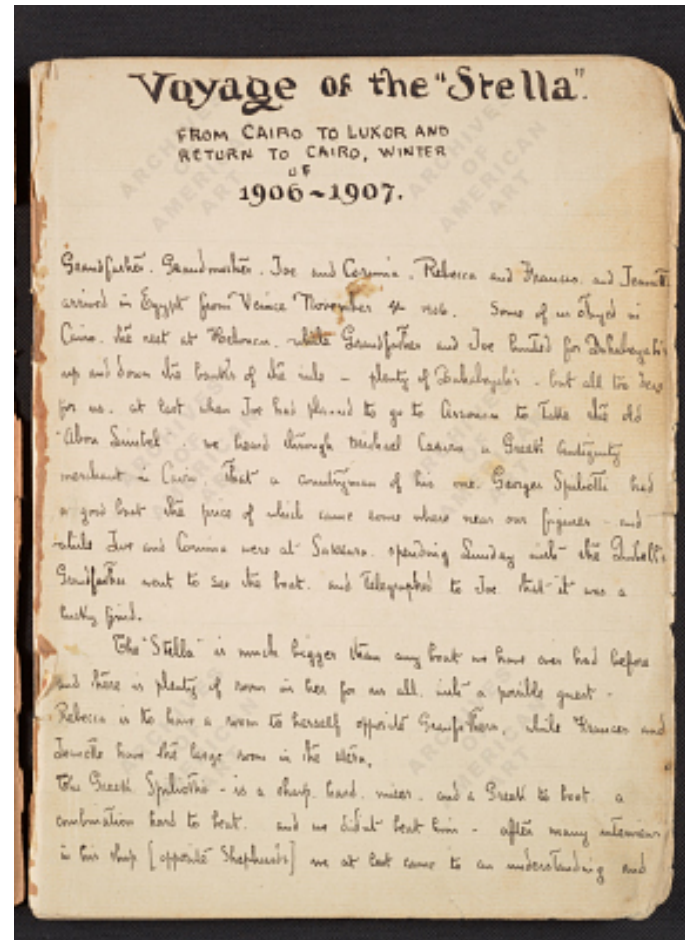 Voyage of the "Stella".
FROM CAIRO TO LUXOR AND
RETURN TO CAIRO, WINTER
OF
1906~1907.
Grandfather. Grandmother. Joe and Corinna. Rebecca and Frances. and
arrived in Egypt from Venice November 4th 1906. Some of us stayed in
Cairo. the rest at Helouan. while Grandfather and Joe hunted for
up and down the banks of the nile - plenty of - but all too dear
for us. at last when Joe had planned to go to Assouan to take the old
"Abou Simbel" we heard through Michael Casira a Greek antiquity
merchant in Cairo. that a countryman of his one. Georges had
a good boat the price of which came some where near our figures - and
while Joe and Corinna were at Sakkara. spending Sunday with the Quibell's
Grandfather went to see the boat. and telegraphed to Joe. that it was a
lucky find.
The "Stella" is much bigger than any boat we have ever had before
and there is plenty of room in her for us all. with a possible guest -
Rebecca is to have a room to herself opposite while Frances and
Jeanette have the large room in the stern.
The Greek - is a sharp. hard. miser. and a Greek to boot. a
combination hard to beat. and we didn't beat him - after many interviews
in his shop [opposite Shepheards] we at last came to an understanding and
ARCHIVES
OF
AMERICAN
ART